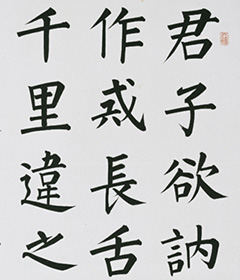 君子欲訥
作戒長舌
千里違之